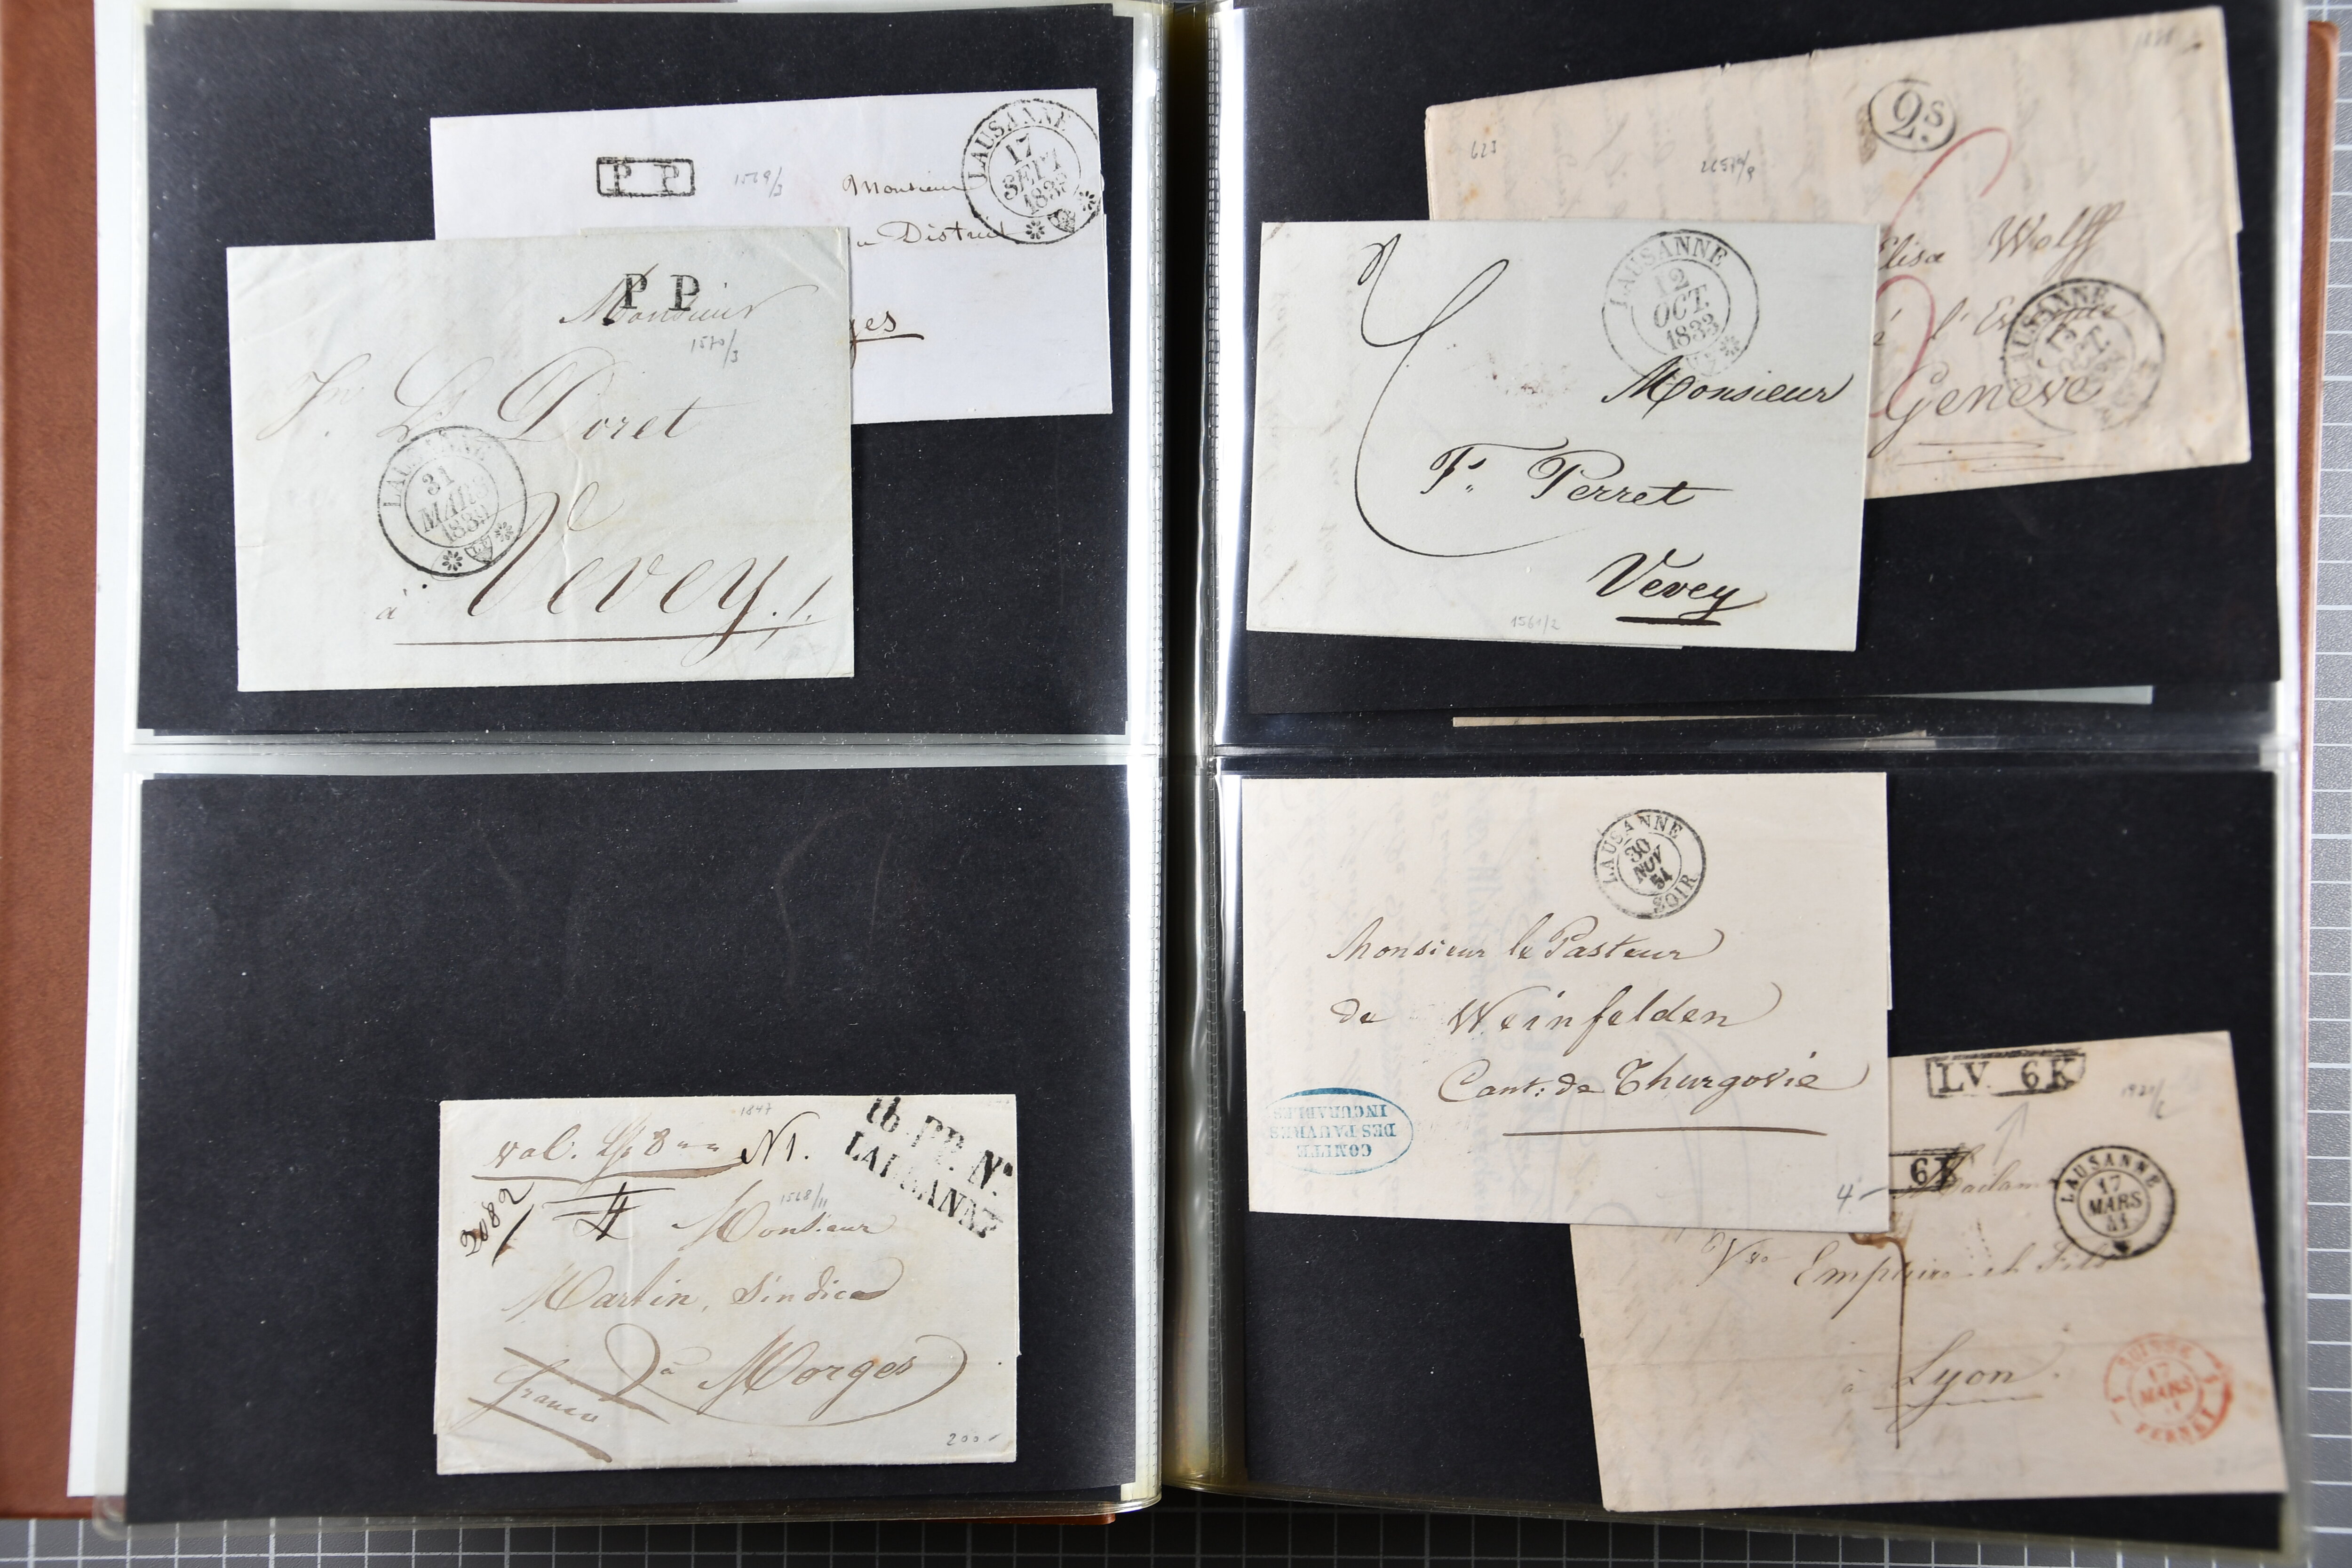 P P
1569/3
Monsieur
LAUSANNE
17
SEPT
183
District
P P
Monsieur
1570/3
Doret
LAUSANNE
31
MARS
1839
à Vevey
1838
2s
623
Elisa Wolff
à l'
LAUSANNE
OCT.
Genève
LAUSANNE
12
OCT.
1833
Monsieur
Fs Perret
Vevey
1561/2
1847
val. 8 N1.
Ib PP. N°
LAUSANNE
2082
1
4
1568/11
Monsieur
Martin, Sindic
à Morges
franco
200.-
LAUSANNE
30
NOV
54
SOIR
Monsieur le Pasteur
de Weinfelden
Cant: de Thurgovie
COMITE
DES PAUVRES
INCURABLES
4.-
LV. 6K
6K
Madame
LAUSANNE
17
MARS
51
Vve et Fils
à Lyon
SUISSE
17
MARS
FERNEY